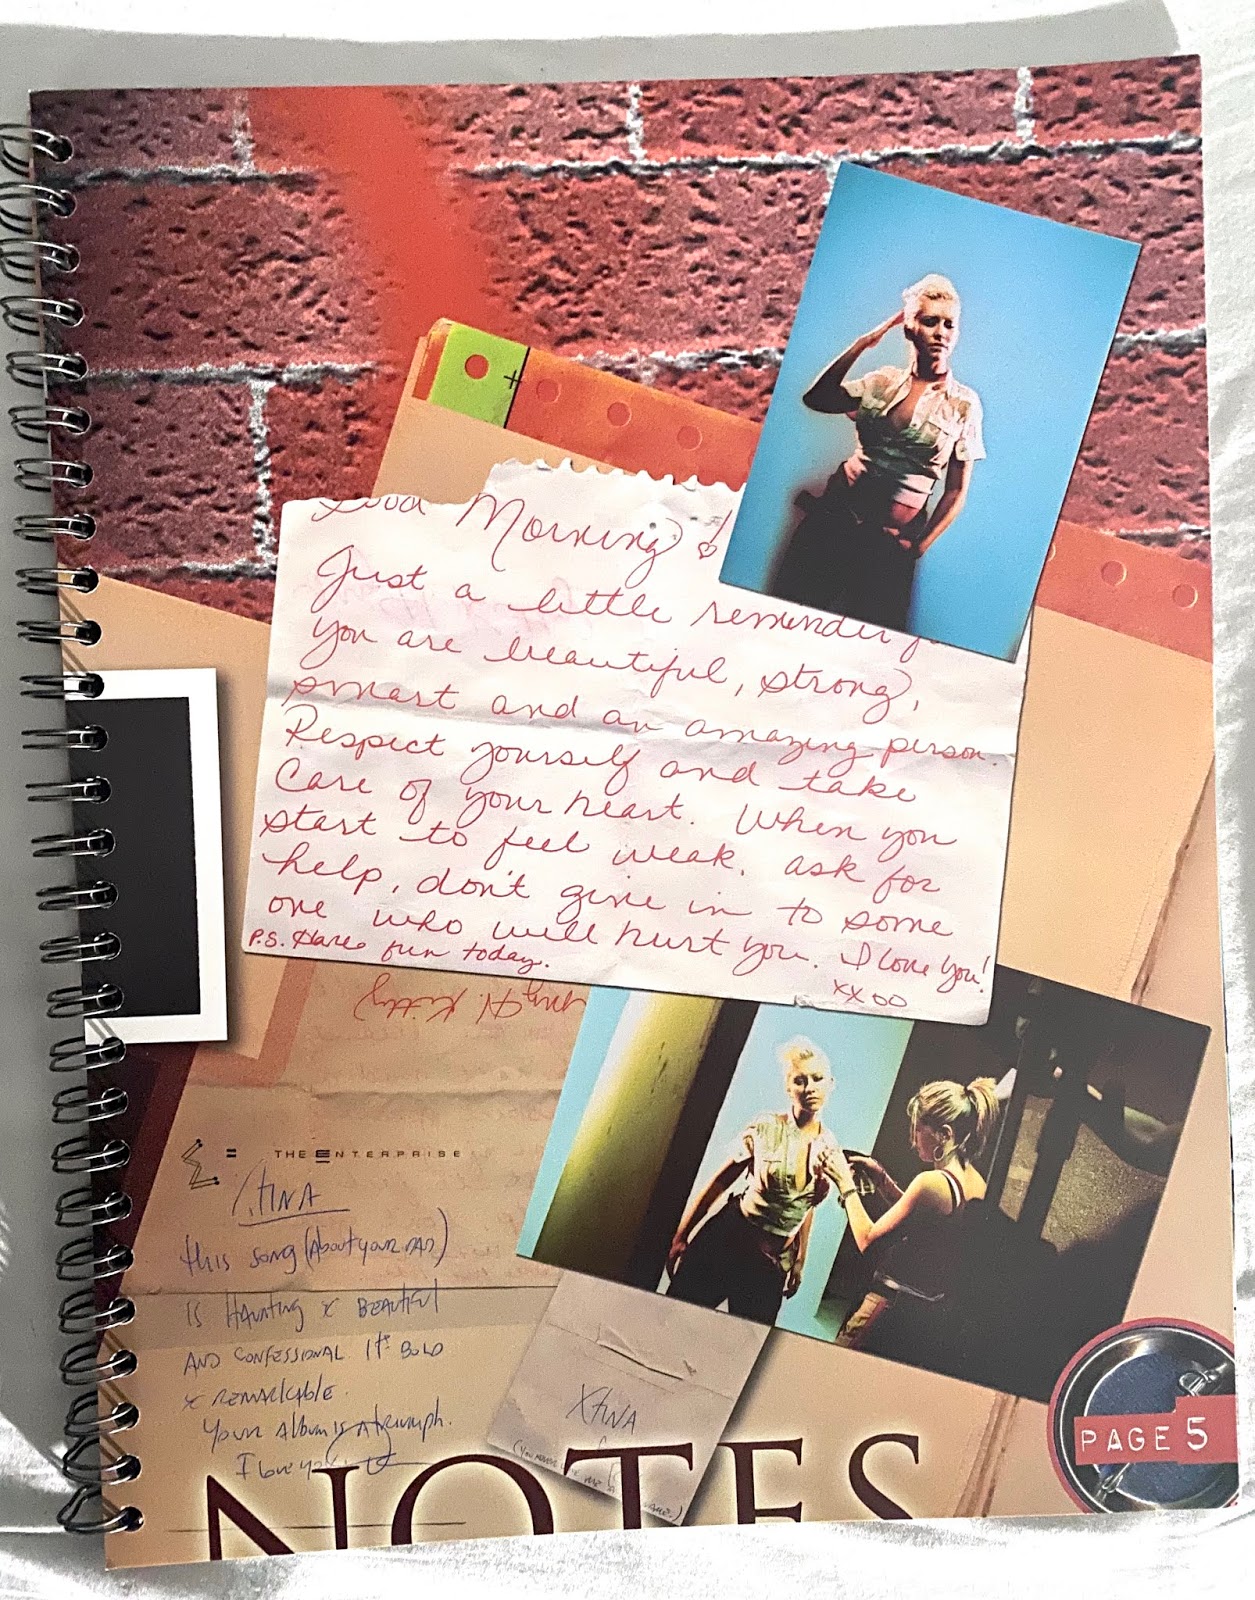 Good Morning!
Just a little reminder
you are beautiful, strong,
smart and an amazing person.
Respect yourself and take
care of your heart. When you
start to feel weak, ask for
help, don't give in to some
one who will hurt you. I love you!
P.S. Have fun today.
xxoo
= THE ENTERPRISE
XTINA
this song (About your DAD)
is HAUNTING & BEAUTIFUL
AND CONFESSIONAL It's BOLD
& REMARKABLE.
Your Album is A triumph.
I love you
XTINA
NOTES
PAGE 5